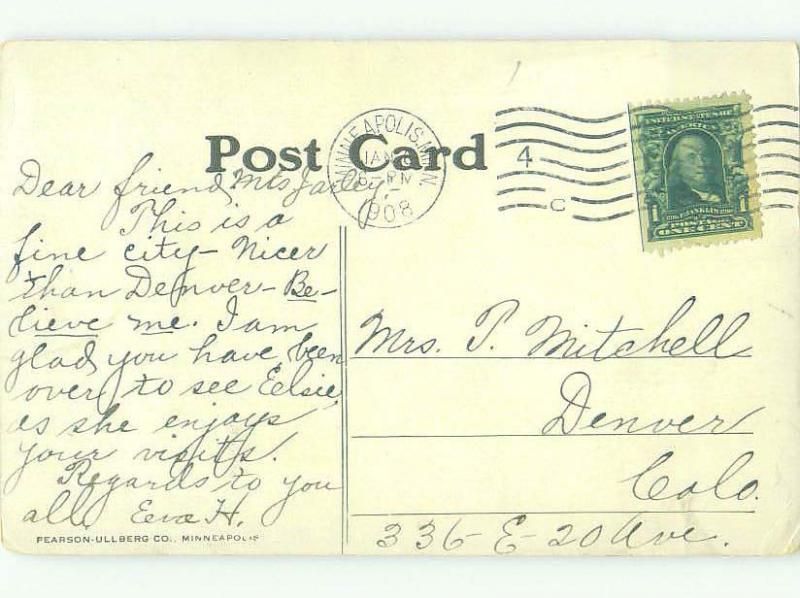 Post Card
MINNEAPOLIS, MINN.
JAN
8 - PM
1908
4
C
UNITED STATES OF
AMERICA
1 1
FRANKLIN
POSTAGE
ONE CENT
Dear friend, Mrs
This is a
fine city - Nicer
than Denver - Be-
lieve me. I am
glad you have been
over to see Eelsie,
as she enjoys
your visits.
Regards to you
all. Eva H.
Mrs. P. Mitchell
Denver
Colo.
336 - E - 20 Ave.
PEARSON-ULLBERG CO., MINNEAPOLIS